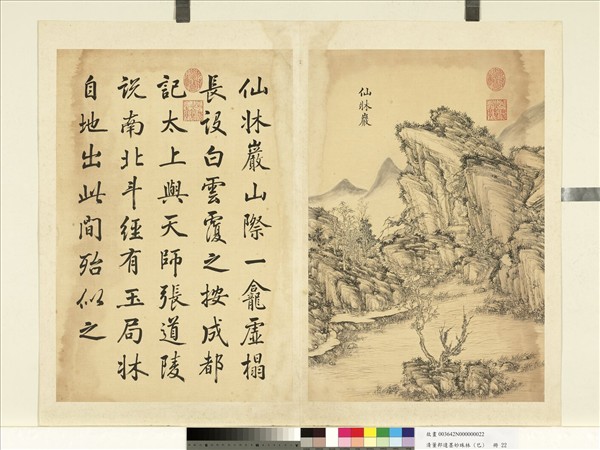 仙牀巖
仙牀巖山際一龕虛榻
長設白雲覆之按成都
記太上與天師張道陵
說南北斗經有玉局牀
自地出此間殆似之
故畫 003642N000000022
清董邦達墨妙珠林（巳） 冊 22